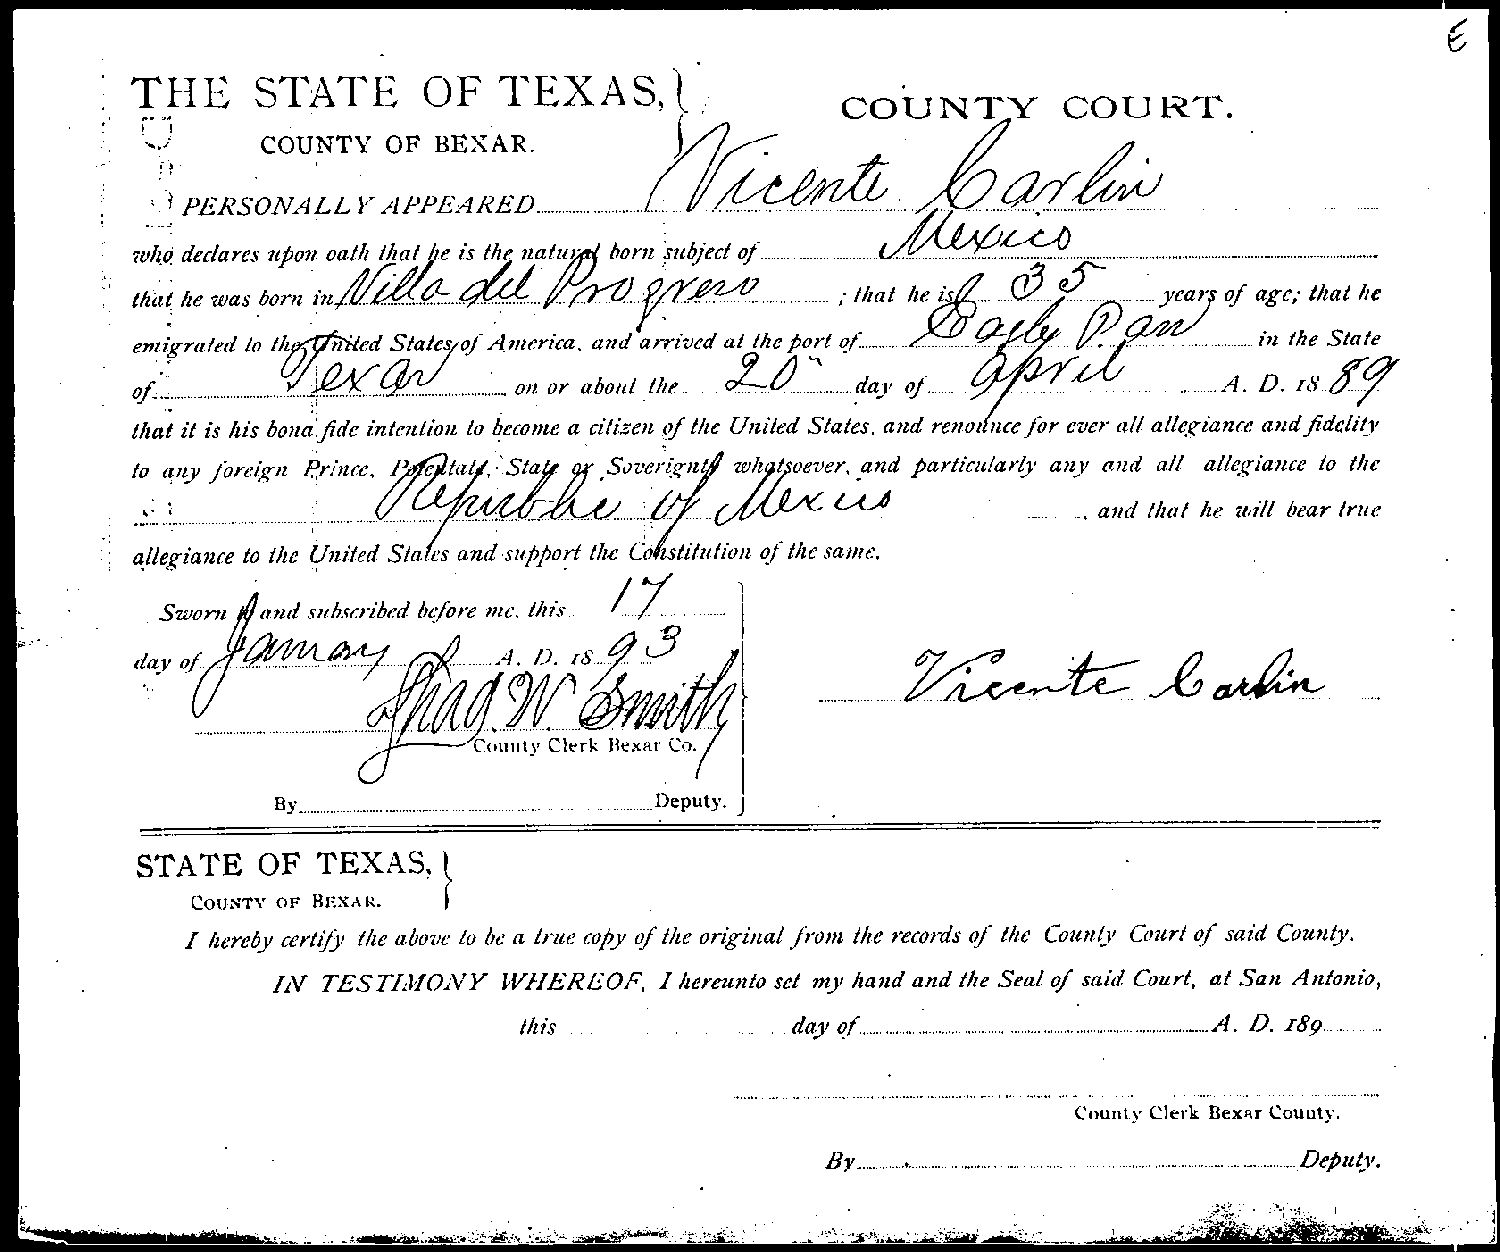 E
THE STATE OF TEXAS,
COUNTY OF BEXAR.
COUNTY COURT.
PERSONALLY APPEARED Vicente Carlin
who declares upon oath that he is the natural born subject of Mexico
that he was born in Villa del Progreso ; that he is 35 years of age; that he
emigrated to the United States of America, and arrived at the port of Eagle Pass in the State
of Texas on or about the 20" day of April A. D. 1889
that it is his bona fide intention to become a citizen of the United States, and renounce for ever all allegiance and fidelity
to any foreign Prince, Potentate, State or Soverignty whatsoever, and particularly any and all allegiance to the
Republic of Mexico , and that he will bear true
allegiance to the United States and support the Constitution of the same.
Sworn and subscribed before me, this 17
day of January A. D. 1893
Thad. W. Smith
County Clerk Bexar Co.
By Deputy.
Vicente Carlin
STATE OF TEXAS,
COUNTY OF BEXAR.
I hereby certify the above to be a true copy of the original from the records of the County Court of said County.
IN TESTIMONY WHEREOF, I hereunto set my hand and the Seal of said Court, at San Antonio,
this day of A. D. 189
County Clerk Bexar County.
By Deputy.